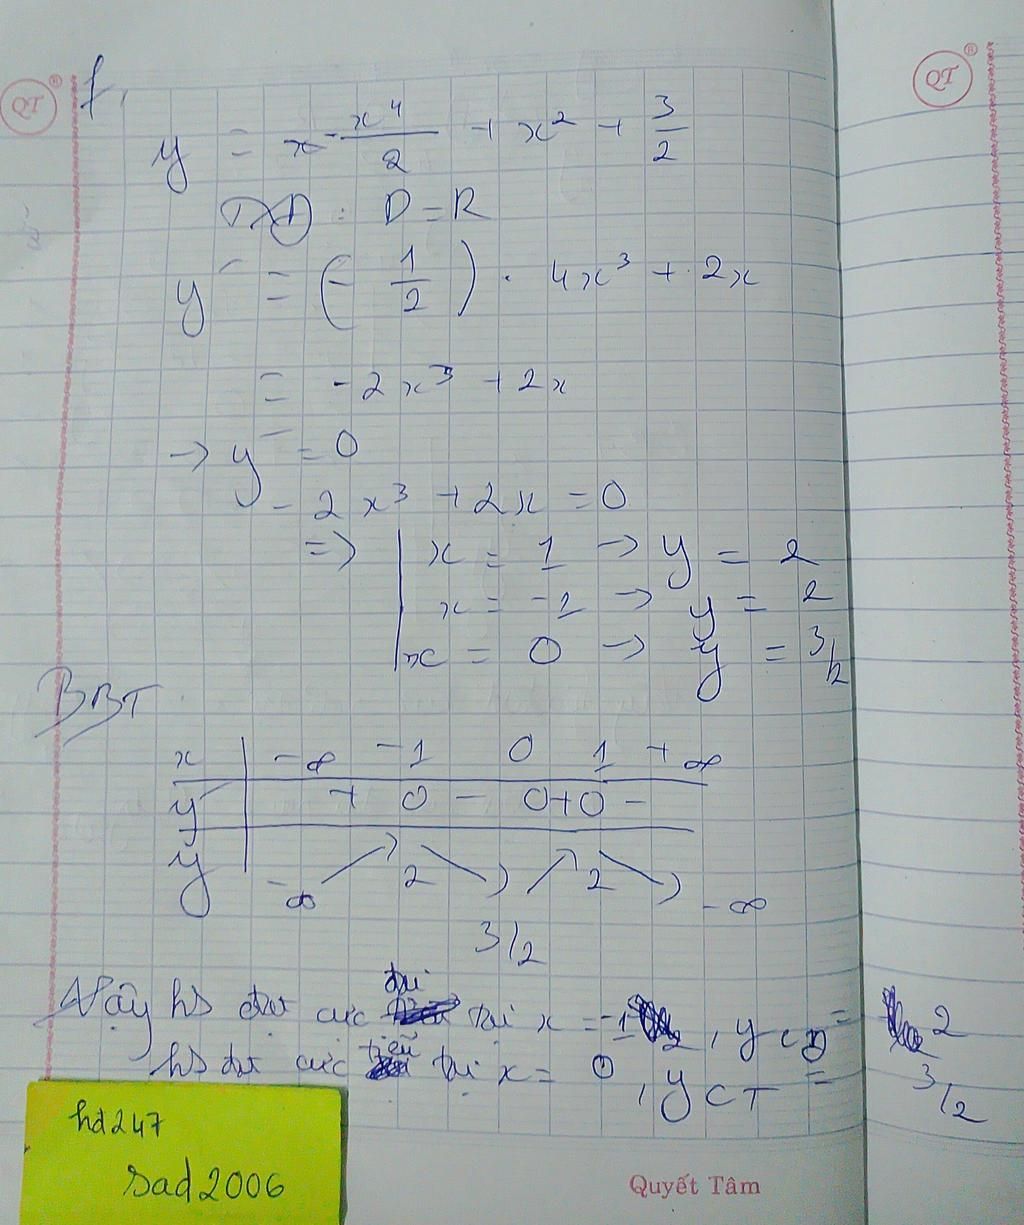 QT ® QT ®
f,
y = -x⁴/2 + x² + 3/2
TXĐ : D = R
y' = (- 1/2) . 4x³ + 2x
= -2x³ + 2x
→ y' = 0
- 2x³ + 2x = 0
=> x = 1 → y = 2
x = -1 → y = 2
x = 0 → y = 3/2
BBT
x -∞ -1 0 1 +∞
y' + 0 - 0 + 0 -
y -∞ 2 3/2 2 -∞
Vậy hs đạt cực đại tại x = -1, yCĐ = 2
hs đạt cực tiểu tại x = 0, yCT = 3/2
hd247
sad2006
Quyết Tâm